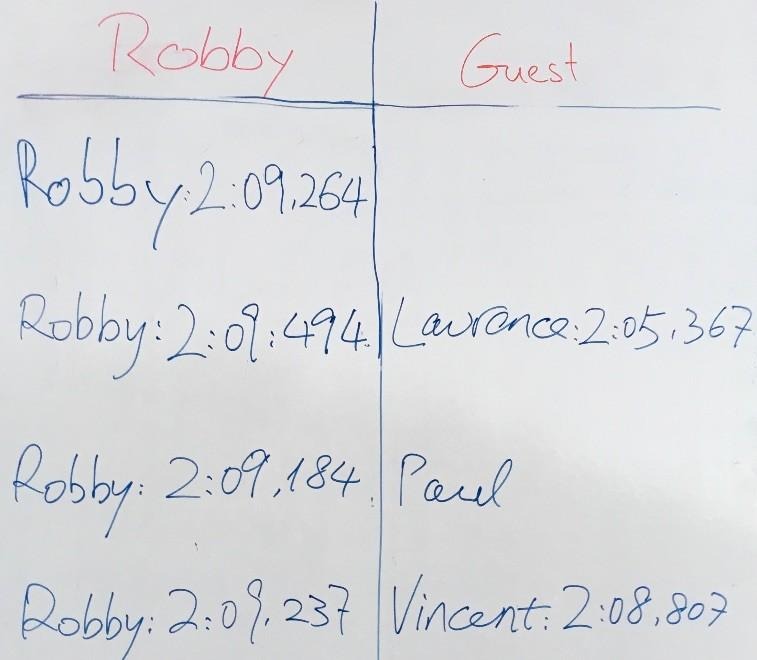 Robby Guest
Robby: 2:09,264
Robby: 2:09:494. Lawrence: 2:05,367
Robby: 2:09,184. Paul
Robby: 2:09,237 Vincent: 2:08,807